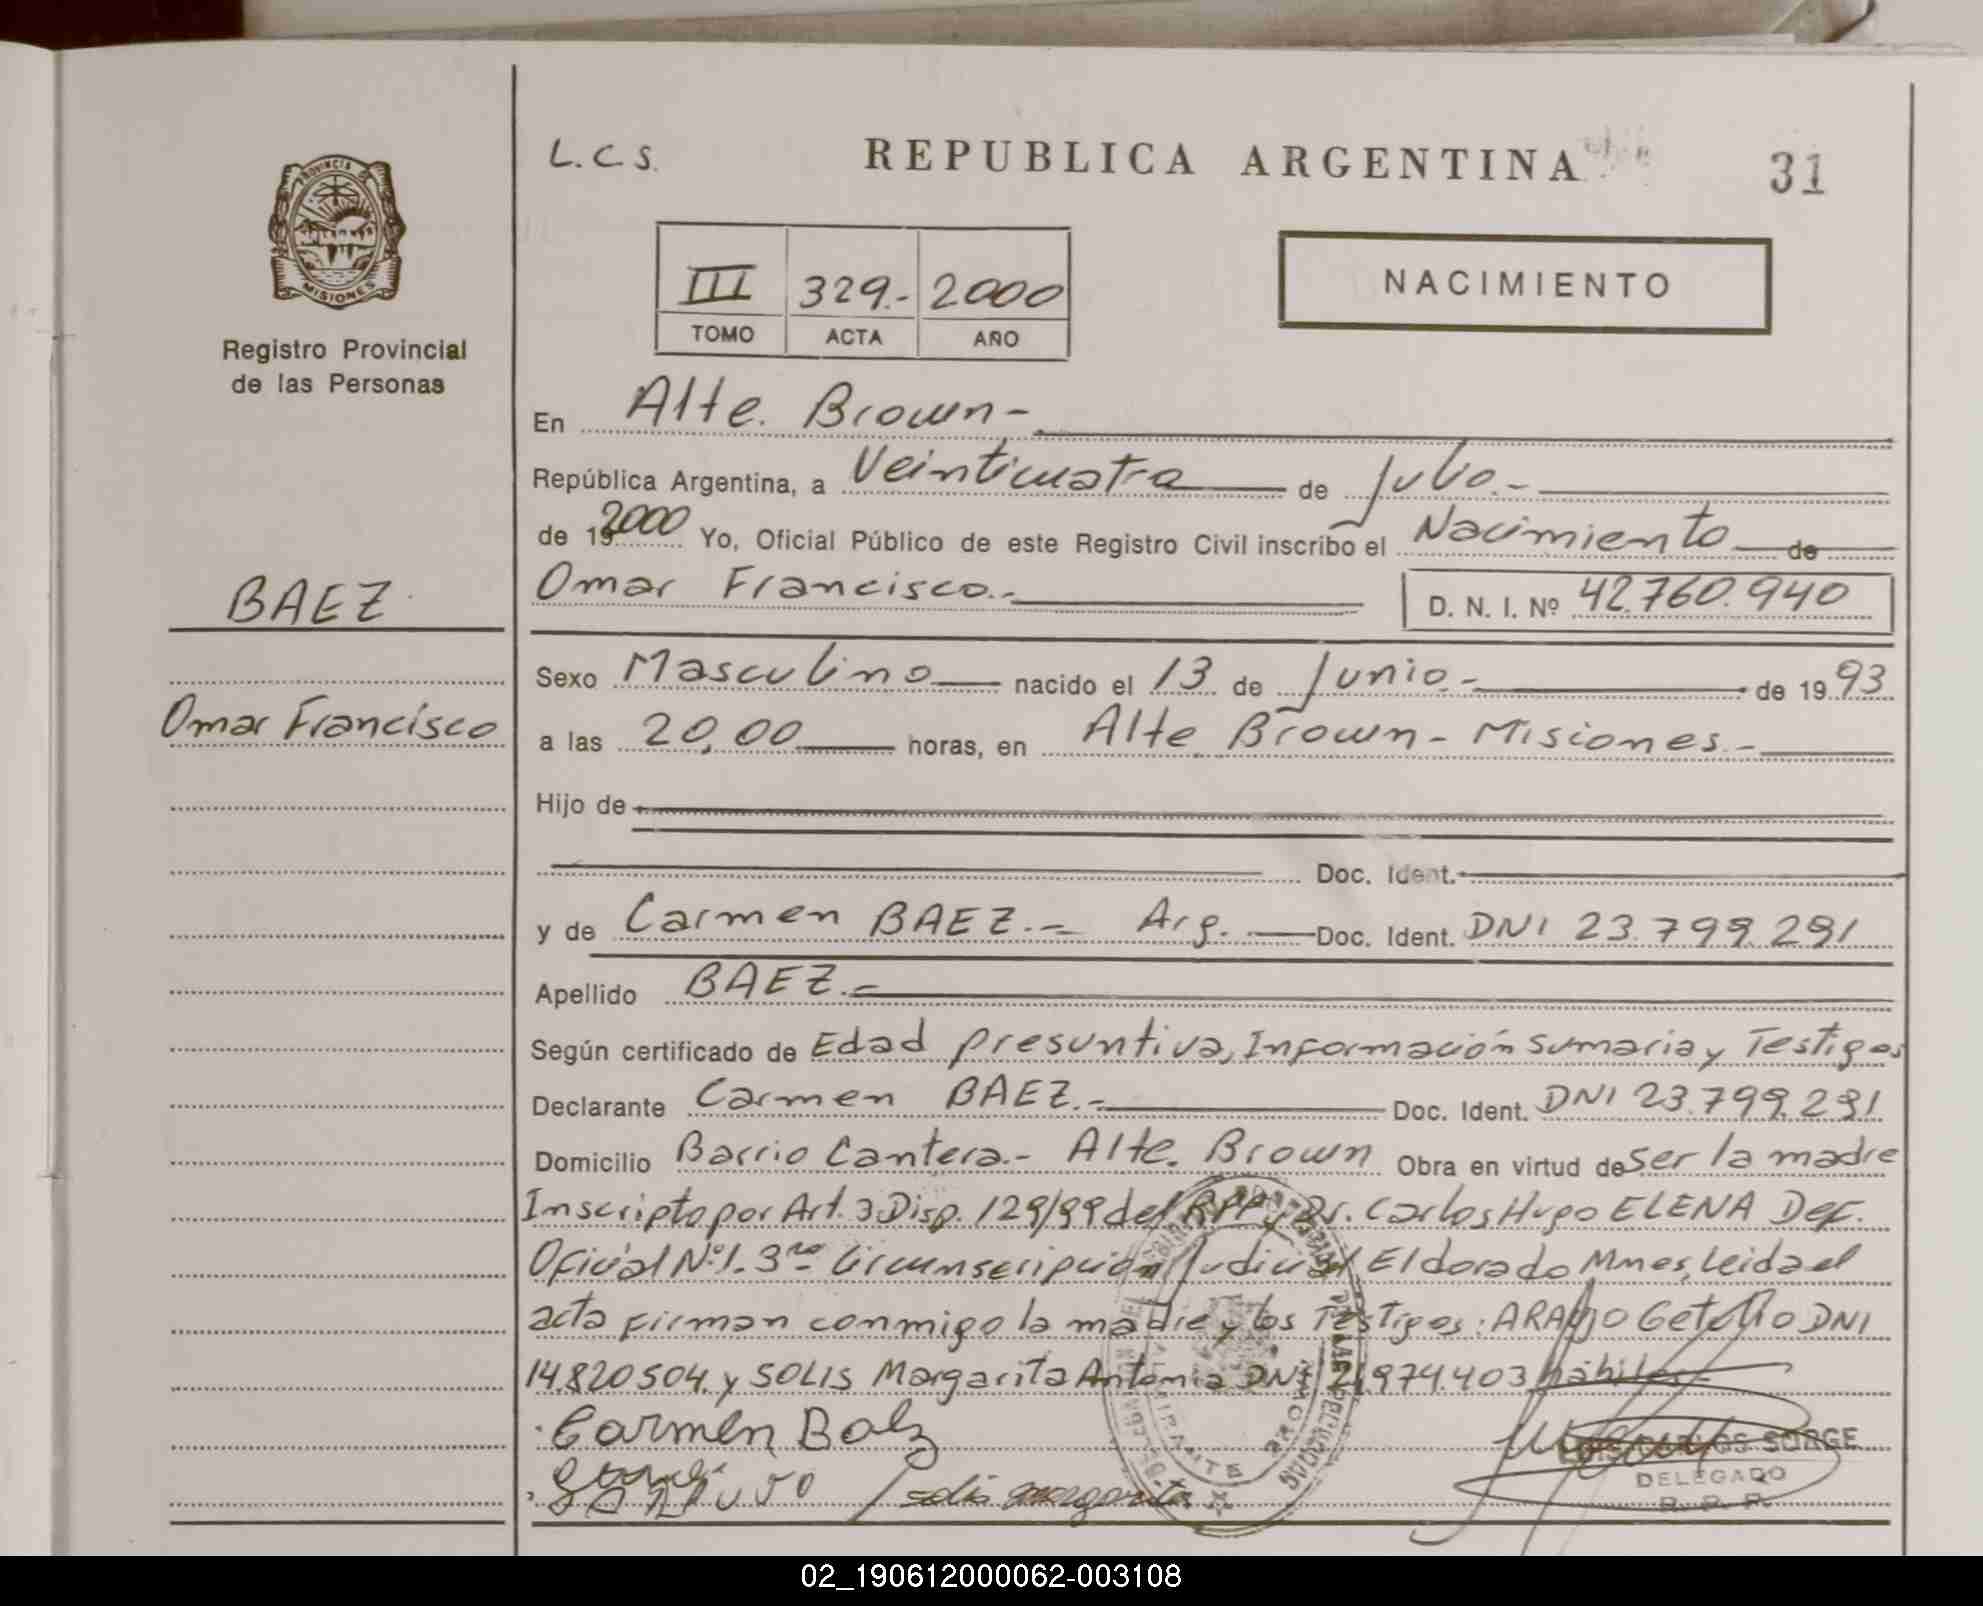 L.C.S.
REPUBLICA ARGENTINA
31
PROVINCIA DE
MISIONES
Registro Provincial
de las Personas
III 329.- 2000
TOMO ACTA AÑO
NACIMIENTO
En Alte. Brown-
República Argentina, a Veinticuatro de Julio.-
de 19 2000 Yo, Oficial Público de este Registro Civil inscribo el Nacimiento de
Omar Francisco.- D. N. I. Nº 42.760.940
BAEZ
Omar Francisco
Sexo Masculino nacido el 13 de Junio.- de 1993
a las 20,00 horas, en Alte Brown - Misiones.-
Hijo de
Doc. Ident.
y de Carmen BAEZ.- Arg. Doc. Ident. DNI 23.799.291
Apellido BAEZ.-
Según certificado de Edad presuntiva, Información Sumaria y Testigos
Declarante Carmen BAEZ.- Doc. Ident. DNI 23.799.291
Domicilio Barrio Cantera.- Alte. Brown Obra en virtud de Ser la madre
Inscripto por Art. 3 Disp. 129/99 del RPP, Dr. Carlos Hugo ELENA Def.
Oficial Nº1. 3ra Circunscripción Judicial Eldorado Mnes, Leida el
acta firman conmigo la madre y los Testigos: ARAUJO Getulio DNI
14.820.504. y SOLIS Margarita Antonia DNI 21.974.403 hábiles
Carmen Baez
solis margarita
ALMIRANTE BROWN
LUIS CARLOS SORGE
DELEGADO
R. P. P.
02_190612000062-003108